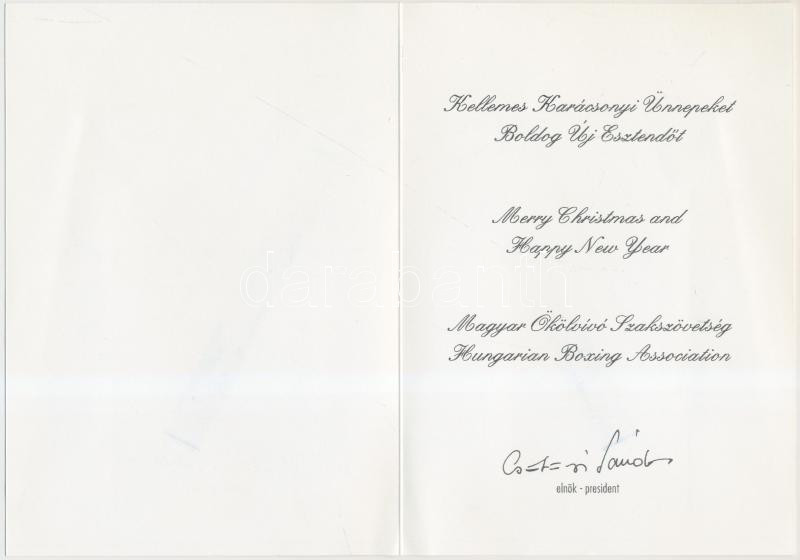 Kellemes Karácsonyi Ünnepeket
Boldog Új Esztendőt
Merry Christmas and
Happy New Year
darabanth
Magyar Ökölvívó Szakszövetség
Hungarian Boxing Association
Sándor
elnök - president